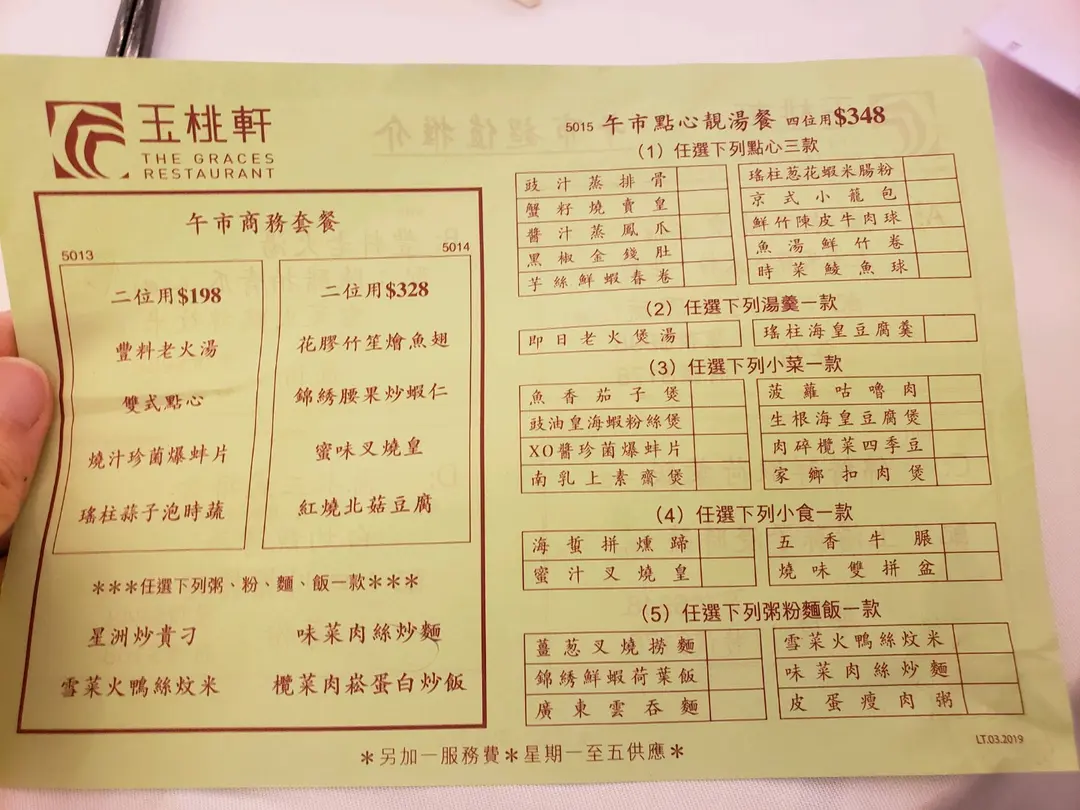 玉桃軒
THE GRACES
RESTAURANT
午市商務套餐
5013
5014
二位用$198
豐料老火湯
雙式點心
燒汁珍菌爆蚌片
瑤柱蒜子泡時蔬
二位用$328
花膠竹笙燴魚翅
錦綉腰果炒蝦仁
蜜味叉燒皇
紅燒北菇豆腐
***任選下列粥、粉、麵、飯一款***
星洲炒貴刁
味菜肉絲炒麵
雪菜火鴨絲炆米
欖菜肉崧蛋白炒飯
5015 午市點心靚湯餐 四位用$348
(1) 任選下列點心三款
豉汁蒸排骨
瑤柱葱花蝦米腸粉
蟹籽燒賣皇
京式小籠包
醬汁蒸鳳爪
鮮竹陳皮牛肉球
黑椒金錢肚
魚湯鮮竹卷
芋絲鮮蝦春卷
時菜鯪魚球
(2) 任選下列湯羹一款
即日老火煲湯
瑤柱海皇豆腐羹
(3) 任選下列小菜一款
魚香茄子煲
菠蘿咕嚕肉
豉油皇海蝦粉絲煲
生根海皇豆腐煲
XO醬珍菌爆蚌片
肉碎欖菜四季豆
南乳上素齋煲
家鄉扣肉煲
(4) 任選下列小食一款
海蜇拼燻蹄
五香牛𦟌
蜜汁叉燒皇
燒味雙拼盆
(5) 任選下列粥粉麵飯一款
薑葱叉燒撈麵
雪菜火鴨絲炆米
錦綉鮮蝦荷葉飯
味菜肉絲炒麵
廣東雲吞麵
皮蛋瘦肉粥
LT.03.2019
*另加一服務費*星期一至五供應*